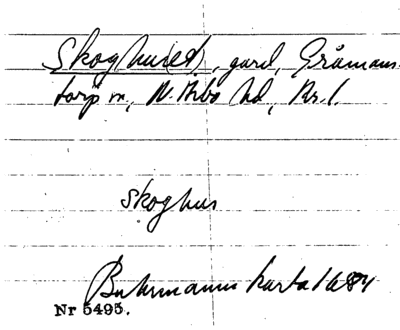 Skoghuset, gård, Gråmans-
torp sn, N. Åsbo hd, Kr. l.
skoghus
Buhrmanns karta 1684
Nr 5495.